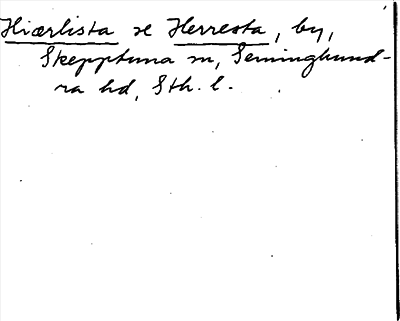 Hiærlista se Herresta, by,
Skepptuna sn, Seminghund-
ra hd, Sth. l.